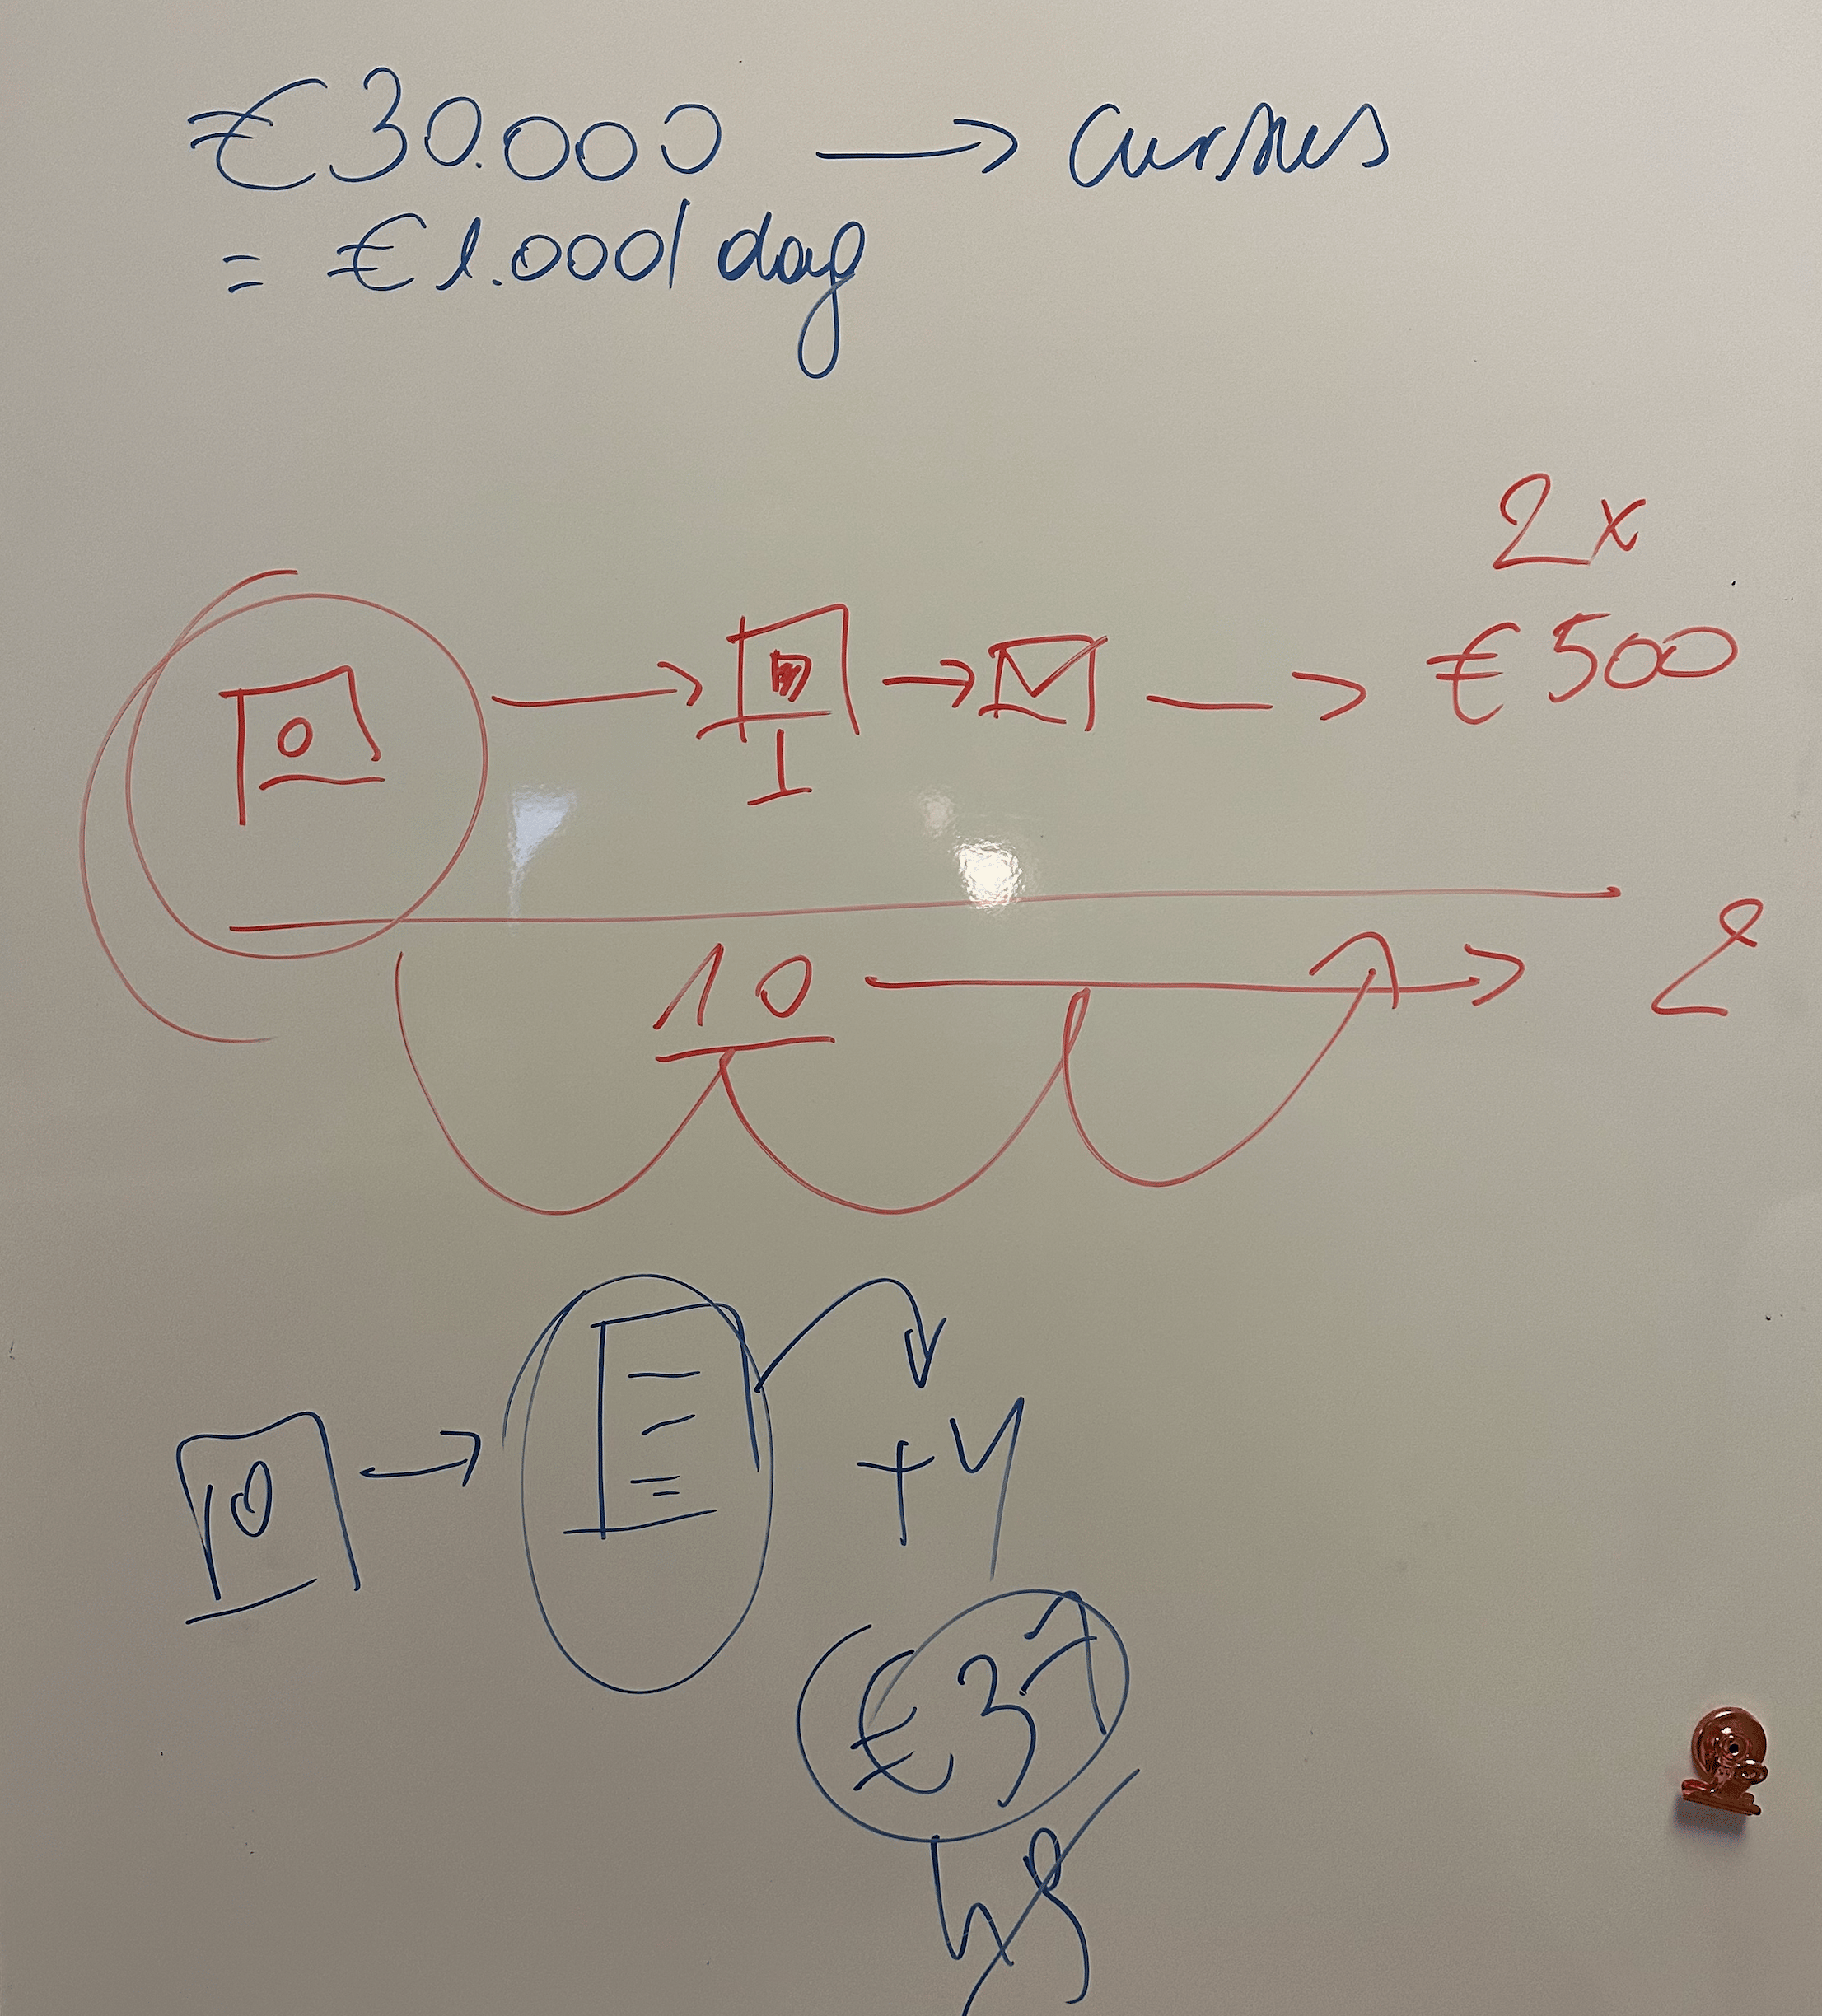 €30.000 → cursus
= €1.000/dag
2x
€500
10 → 2
+4
€37